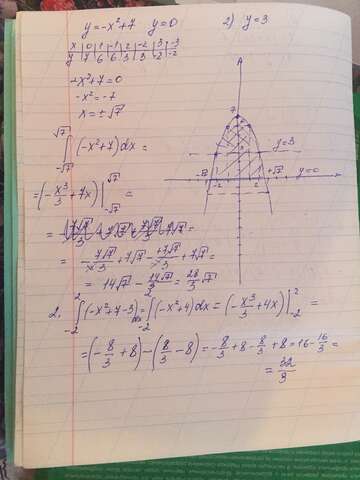 y = -x² + 7   y = 0   2) y = 3
x | 0 | 1 | -1 | 2 | -2 | 3 | -3
y | 7 | 6 | 6 | 3 | 3 | -2 | -2
-x² + 7 = 0
-x² = -7
x = ±√7
∫_{-√7}^{√7} (-x² + 7) dx =
= (-x³/3 + 7x) |_{-√7}^{√7} =
= -7√7/3 + 7√7 - 7√7/3 + 7√7 =
= 14√7 - 14√7/3 = 28/3 √7
7
y = 3
-√7 -2 2 +√7 y = 0
2. ∫_{-2}^{2} (-x² + 7 - 3) dx = ∫_{-2}^{2} (-x² + 4) dx = (-x³/3 + 4x) |_{-2}^{2} =
= (-8/3 + 8) - (8/3 - 8) = -8/3 + 8 - 8/3 + 8 = 16 - 16/3 =
= 32/3